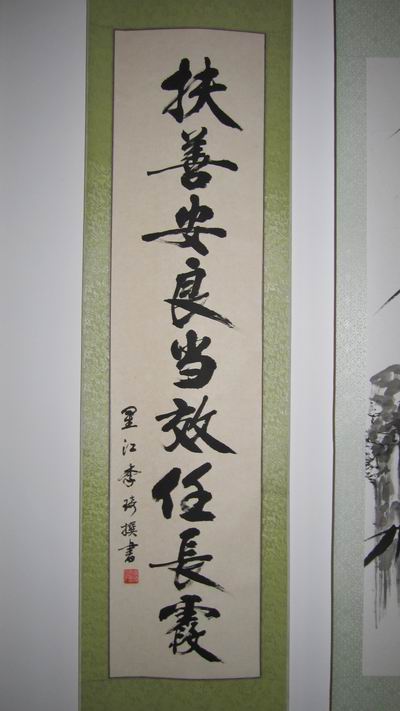 扶善安良当效任長霞
星江李琦撰書